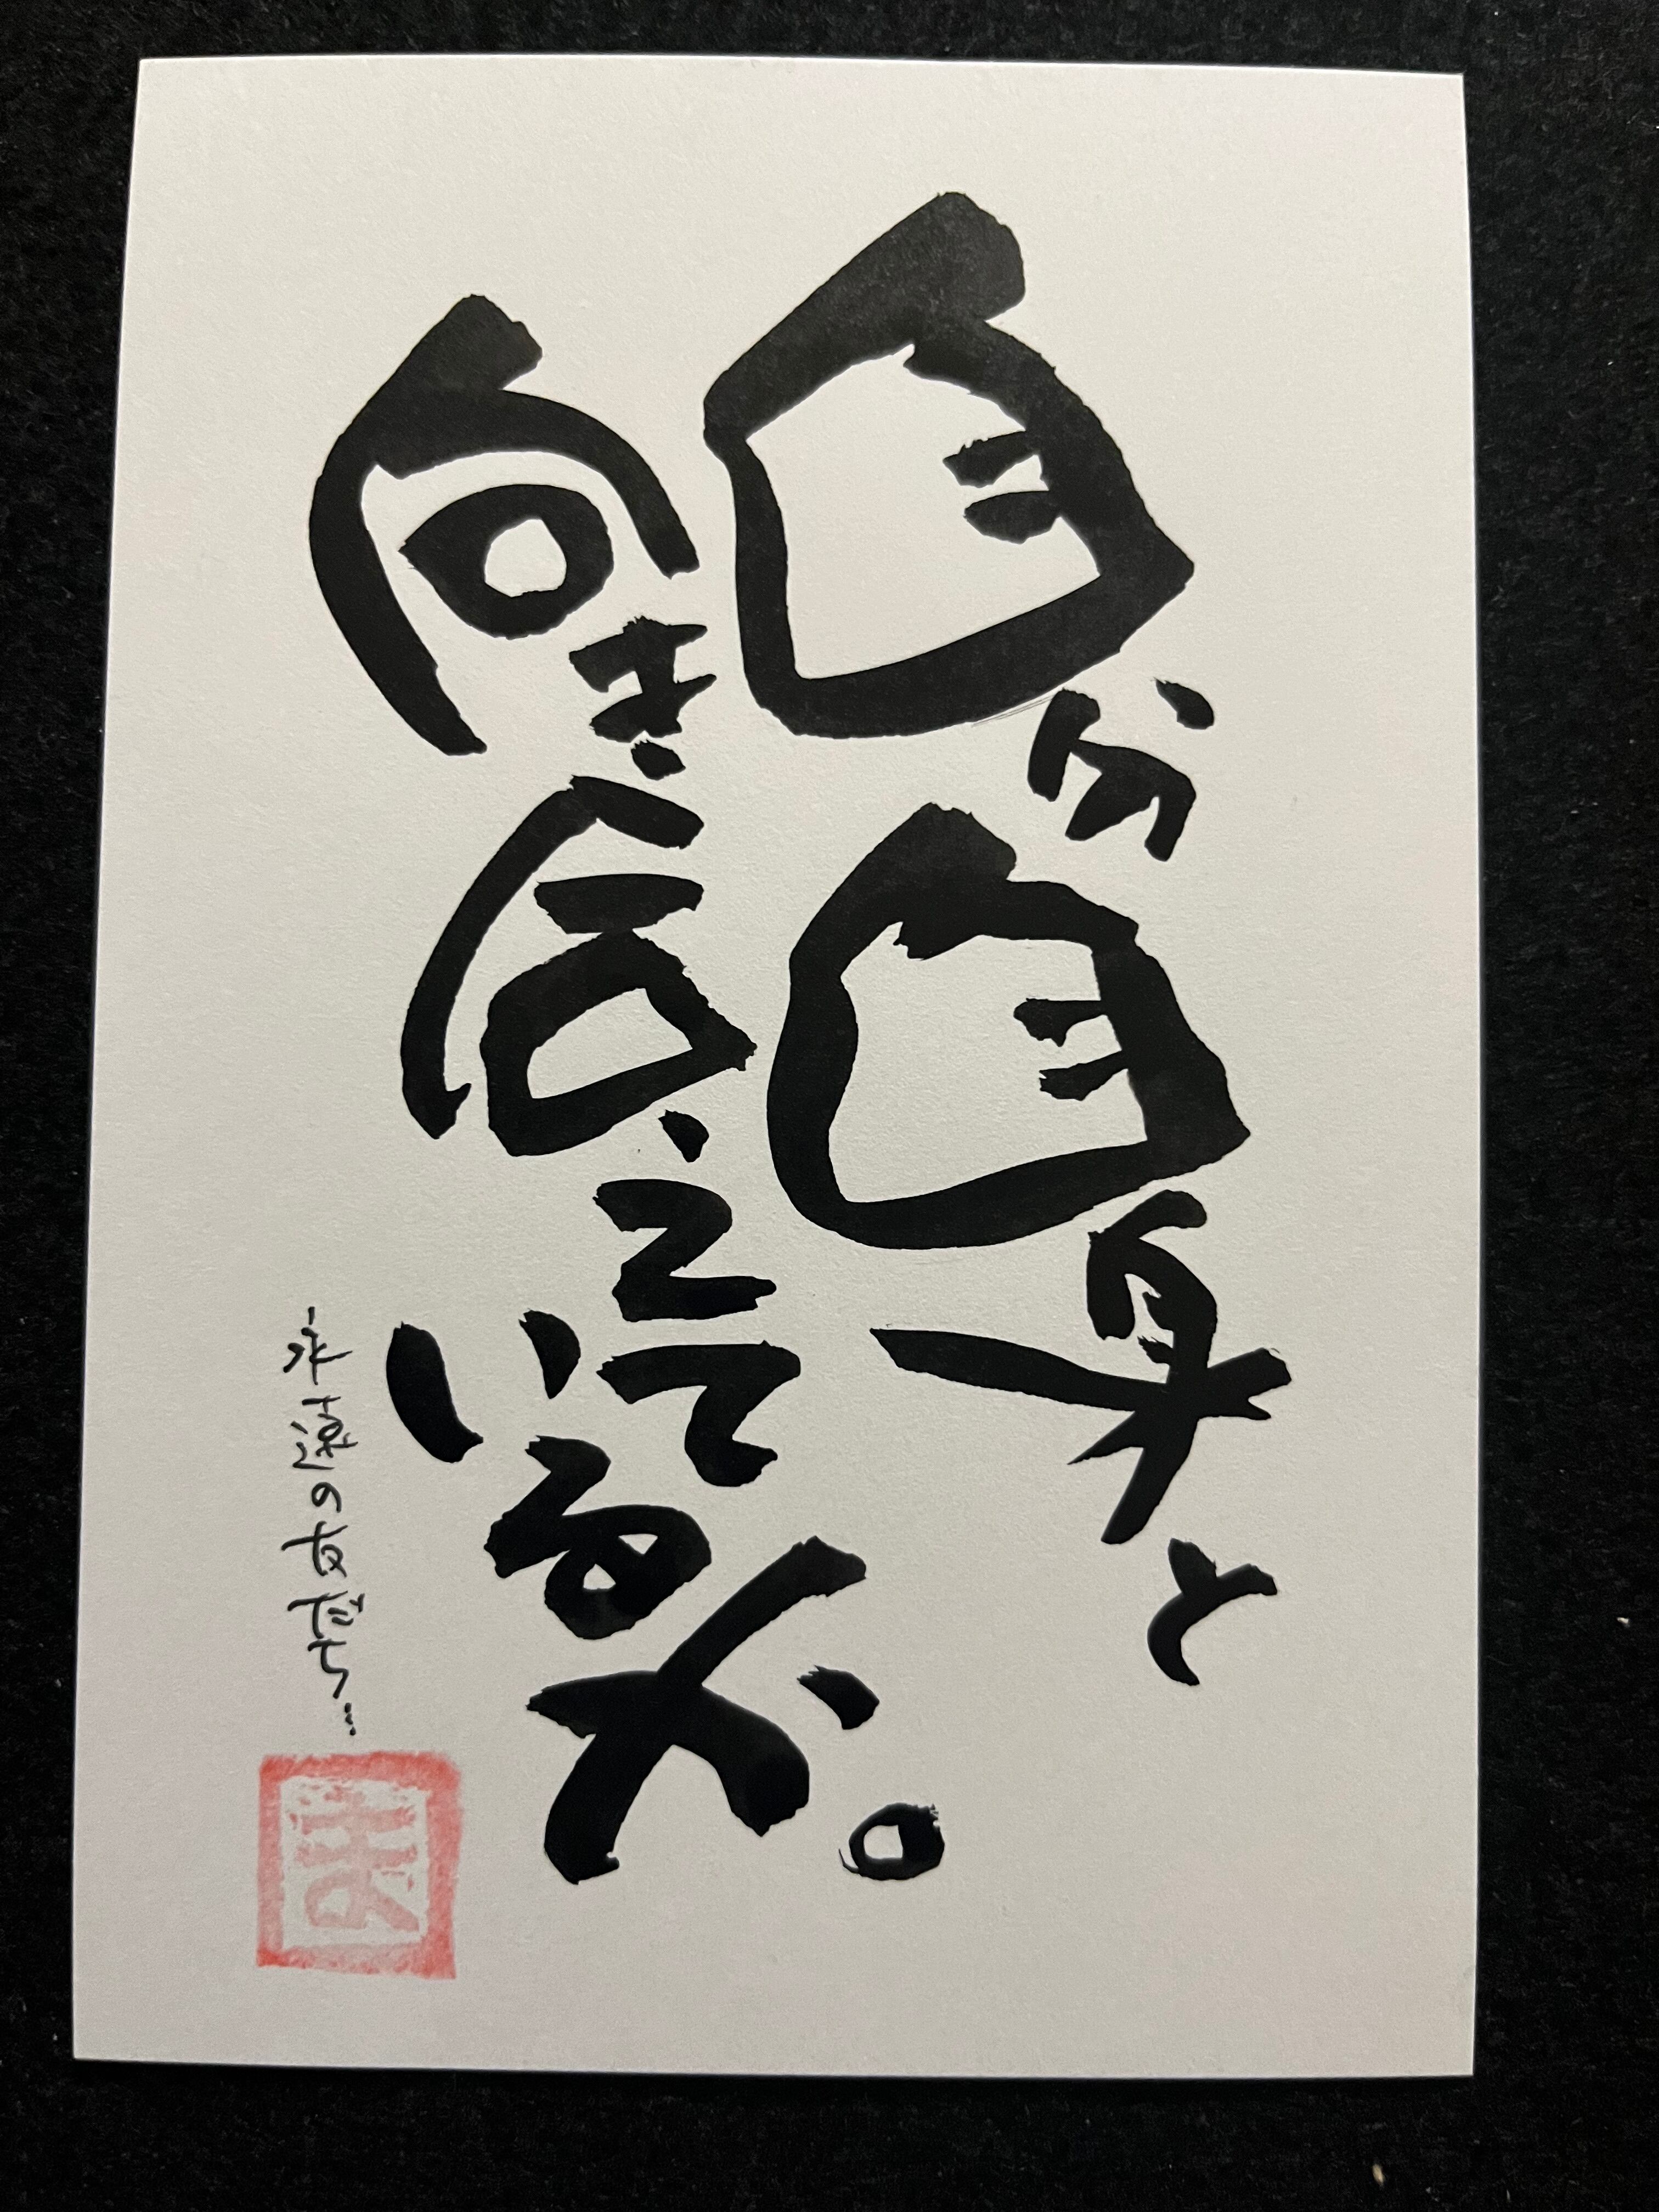 自分自身と
向き合えているか。
永遠の友だち…
ま